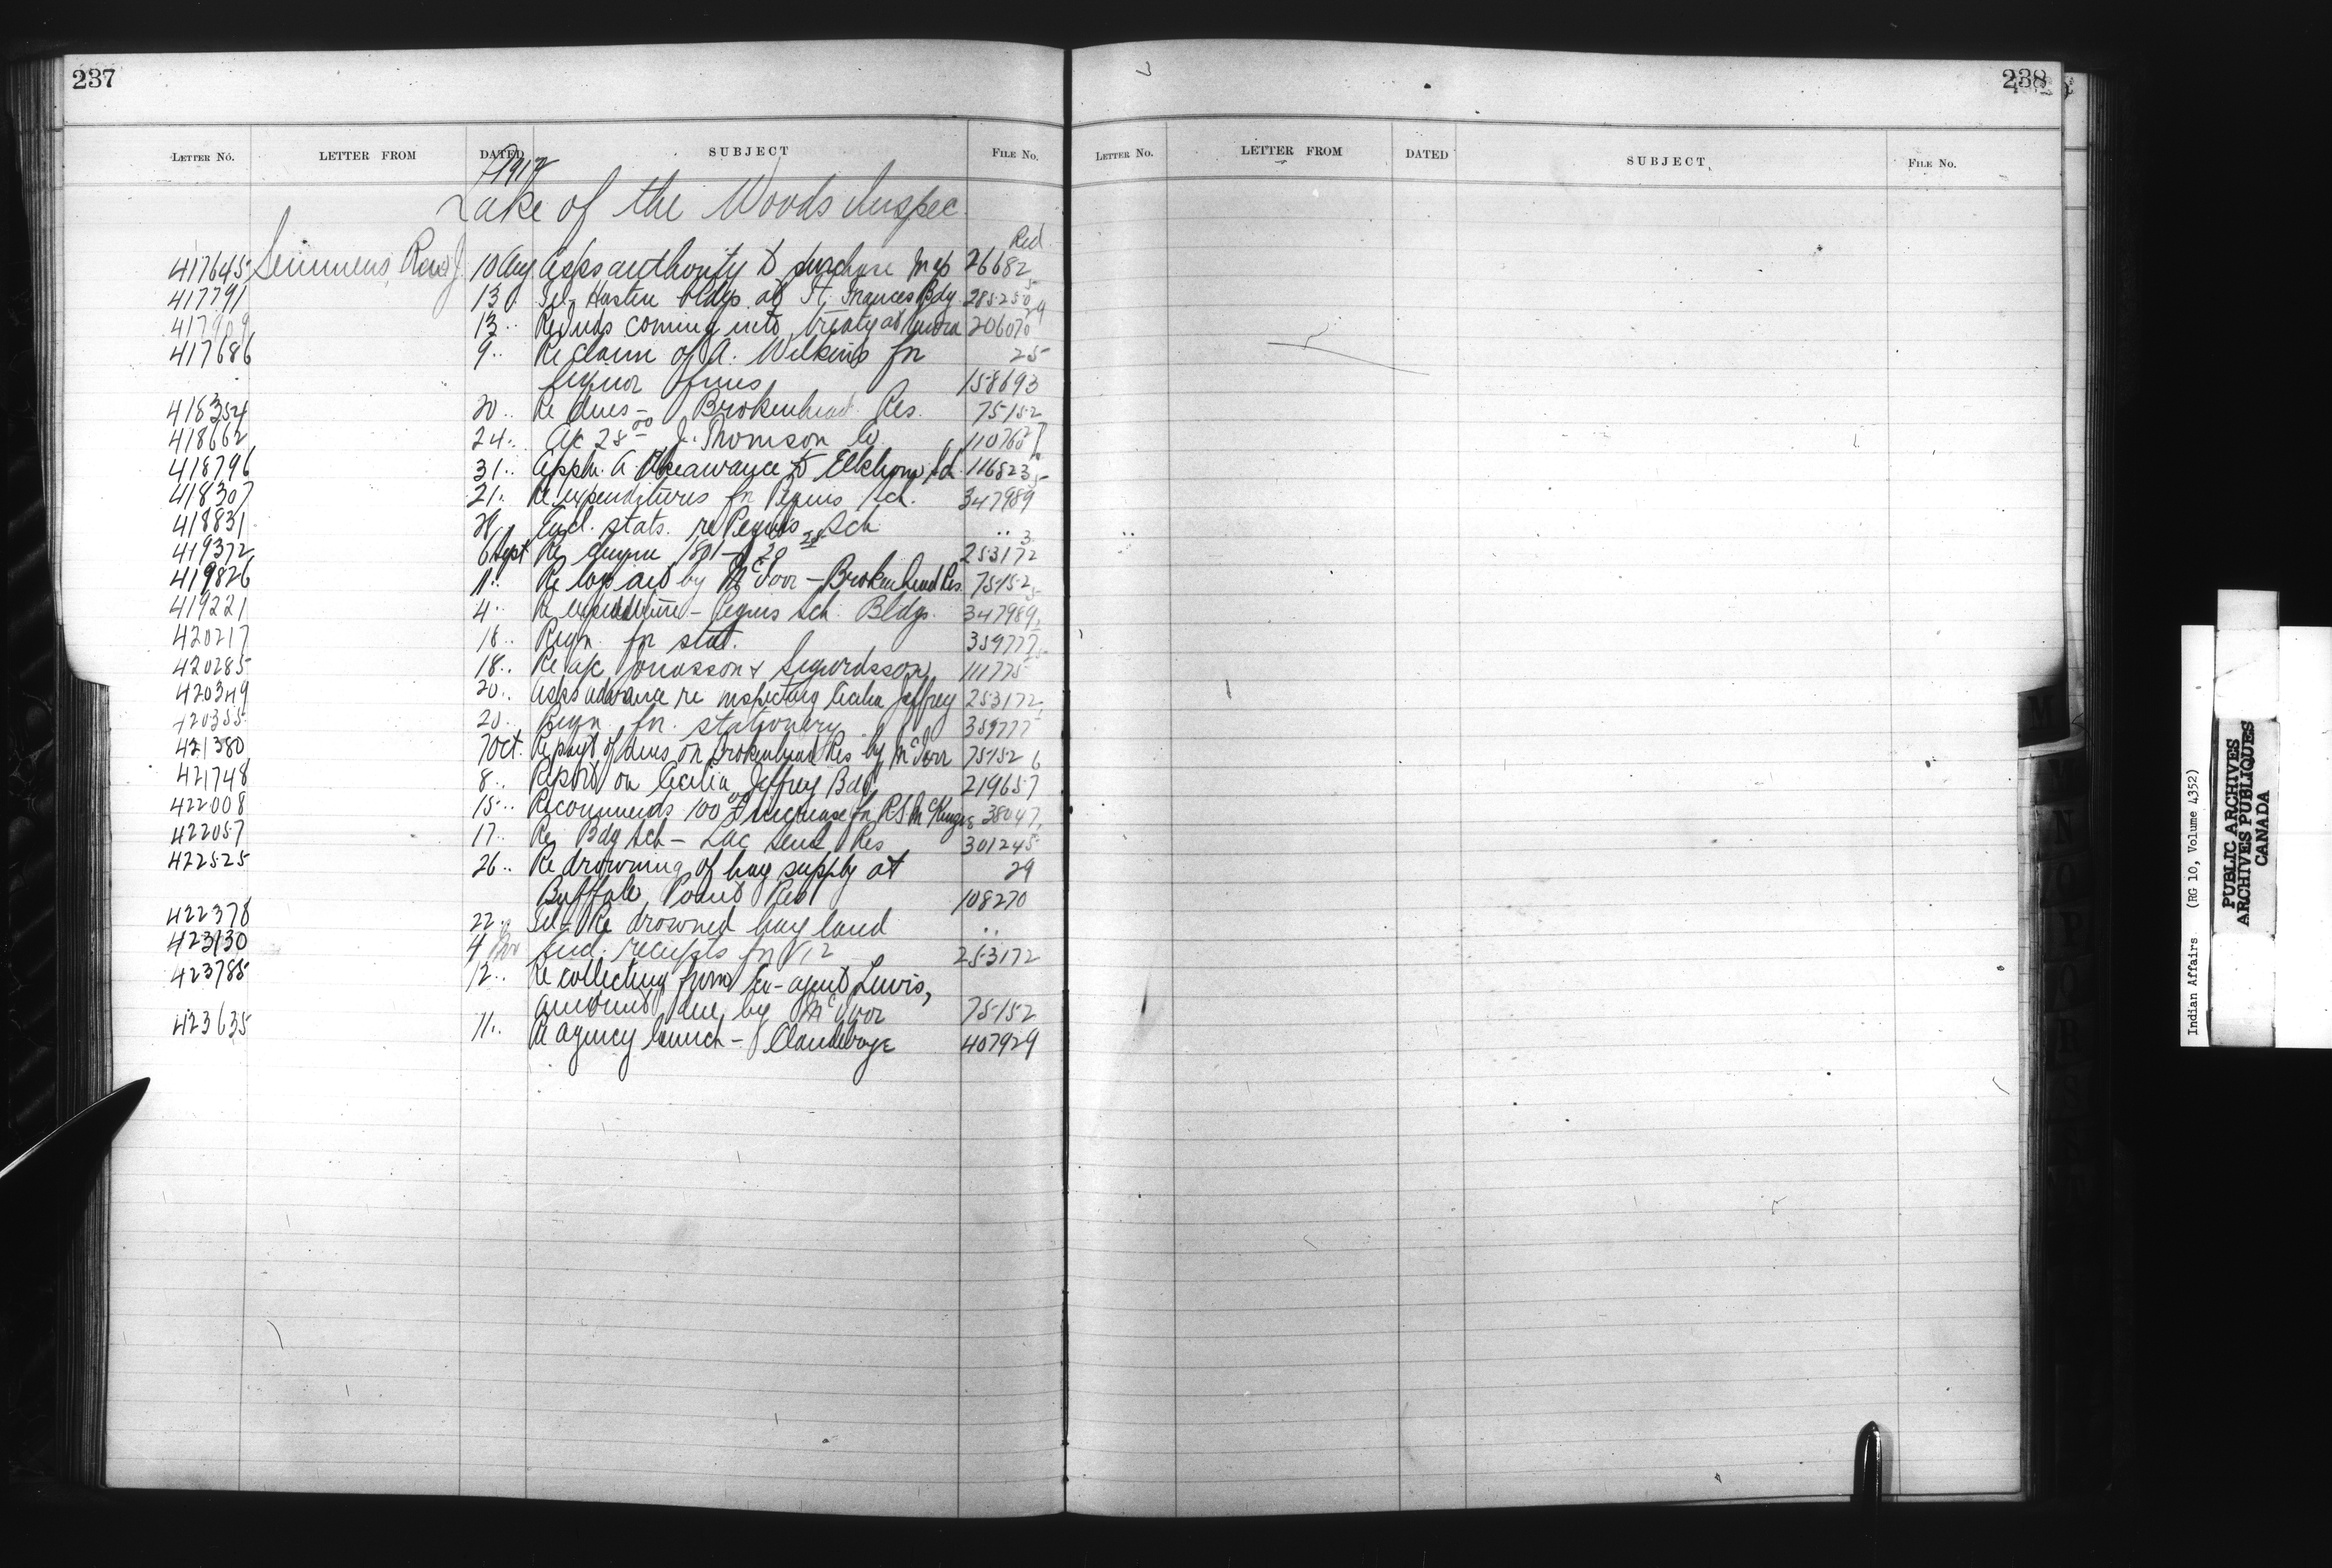 237
LETTER No. LETTER FROM DATED SUBJECT FILE No.
1912
Lake of the Woods Inspec.
Red
417645 Semmens, Rev J. 10 Aug Asks authority to purchase Map 26682
417791 13 .. Tel- Hasten bldgs at Ft. Frances Bdg 285250
5
13 .. Re Inds coming into treaty at 206070
29
417686 9 .. Re claim of A. Wilkins for 25
liquor fines 158693
418354 20 .. Re dues - Brokenhead Res. 75152
418662 24 .. A/c 28.00 J. Thomson Co. 110760
418796 31 .. Appln. A. to Elkhorn 116823
418307 21 .. Re expenditures for Peguis Sch. 347989
5
418831 Encl. stats. re Peguis Sch. ..
419372 6 Sept Re 1801 - 20 253172
3
419826 11 .. Re logs by McIvor - Brokenhead Res. 75152
419221 4 .. Re expenditure - Peguis Sch. Bldgs. 347989
5
420217 18 .. Reqn. for stat. 359777
420285 18 .. Re a/c Jonasson & Sigurdsson 111775
420349 20 .. Asks advance re inspecting Cecilia Jeffrey 253172
420355 20 .. Reqn. for stationery 359777
421380 7 Oct. Re payt of dues on Brokenhead Res by McIvor 75152
421748 8 .. Report on Cecilia Jeffrey Bdg 219657
6
422008 15 .. Recommends 100.00 increase for R.S. McKenzie 38047
422057 17 .. Re Bdg Sch - Lac Seul Res 301245
422525 26 .. Re drowning of hay supply at 29
Buffalo Point Res 108270
422378 22 .. Tel - Re drowned hay land ..
423130 4 Nov Encl. receipts for 253172
423785 12 .. Re collecting from Ex-agent Lewis,
amount due by McIvor 75152
423635 11 .. Re agency launch - Clandeboye 407929
238
LETTER No. LETTER FROM DATED SUBJECT FILE No.
M
N
O
P
Q
R
S
Indian Affairs (RG 10, Volume 4352)
PUBLIC ARCHIVES
ARCHIVES PUBLIQUES
CANADA